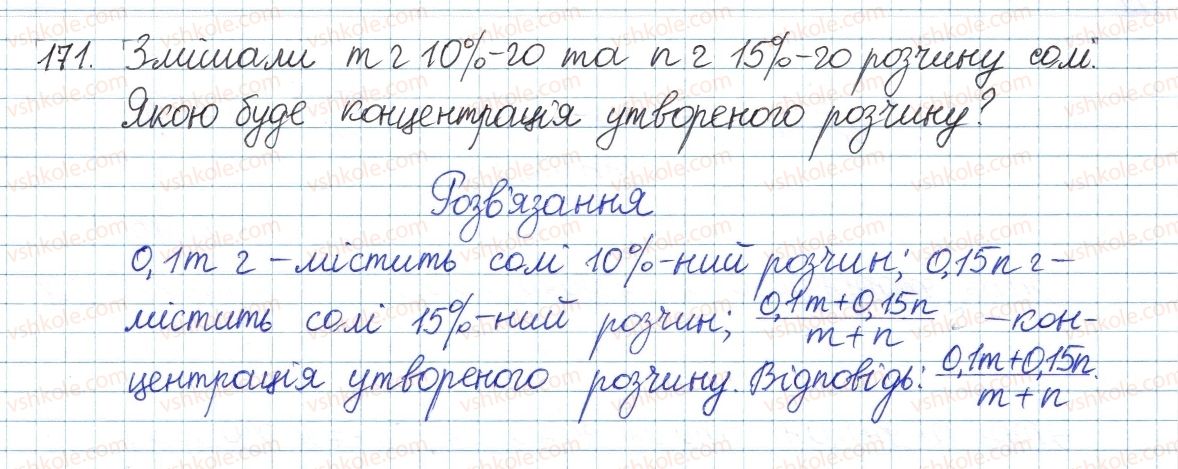 171. Змішали m г 10%-го та n г 15%-го розчину солі.
Якою буде концентрація утвореного розчину?
Розв'язання
0,1m г – містить солі 10%-ний розчин; 0,15n г –
містить солі 15%-ний розчин; (0,1m+0,15n)/(m+n) – кон-
центрація утвореного розчину. Відповідь: (0,1m+0,15n)/(m+n).